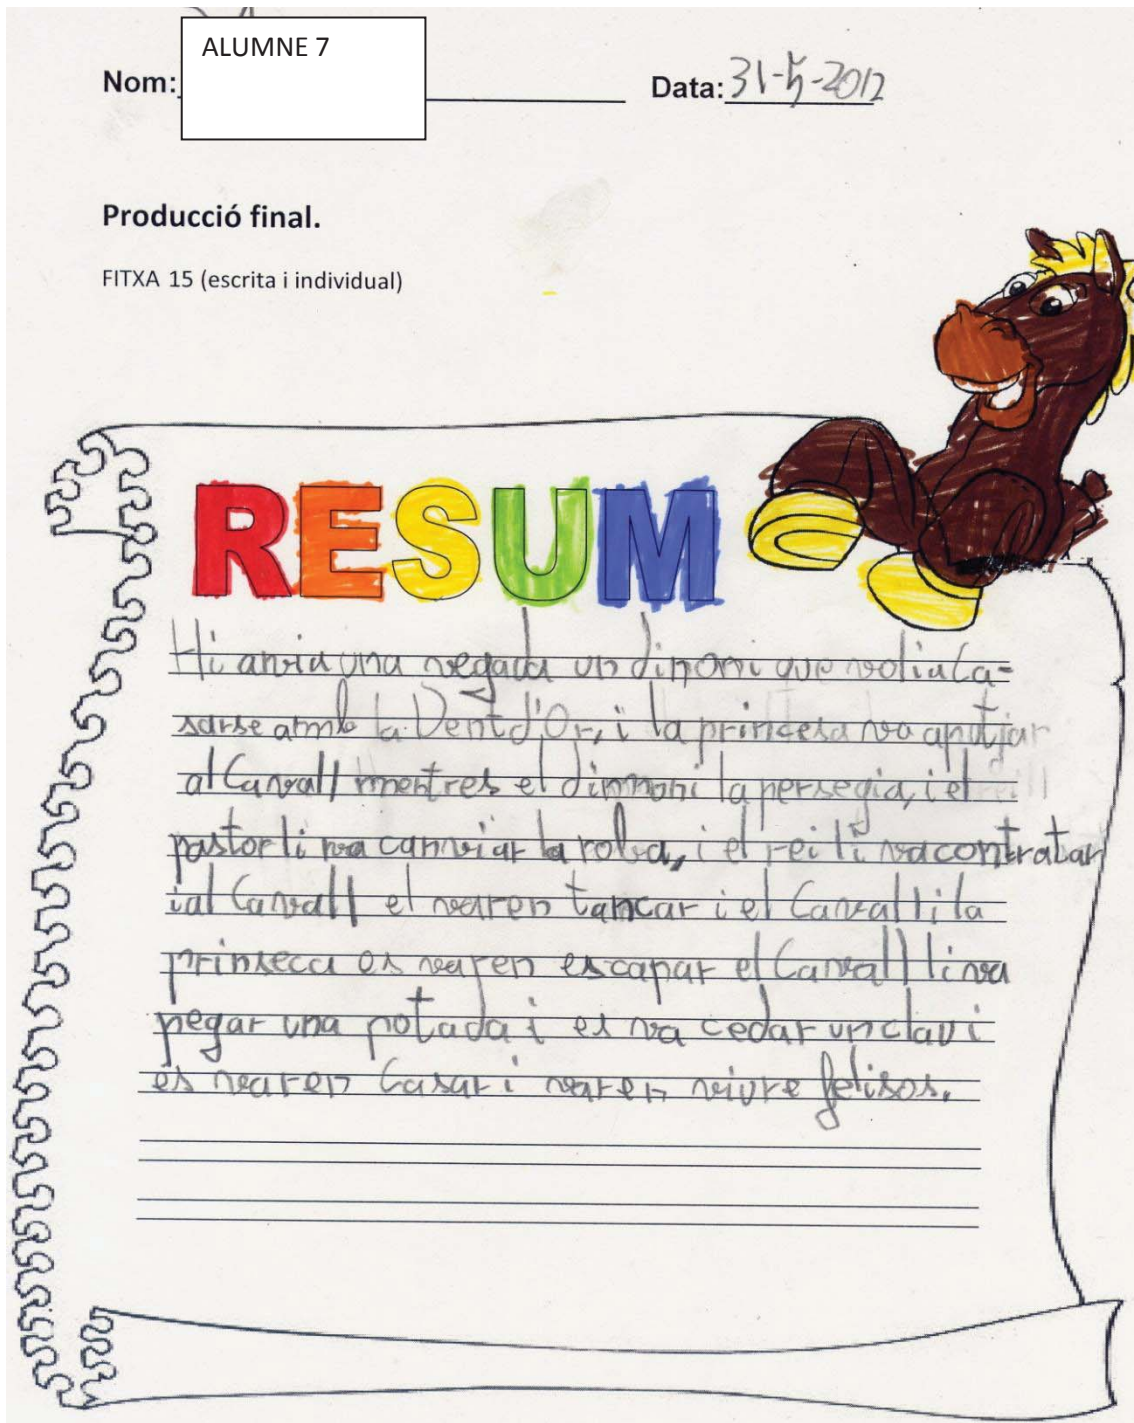 ALUMNE 7
Nom: Data: 31-5-2012
Producció final.
FITXA 15 (escrita i individual)
RESUM
Hi avia una vegada un dimoni que volia Ca-
sarse amb la Vent d'Or, i la princesa va aputjar
al Cavall mentres el dimmoni la persegia, i el
pastor li va canviar la roba, i el rei li va contratar
i al Cavall el varen tancar i el Cavall i la
prinseca es varen escapar el Cavall li va
pegar una potada i es va cedar un clau i
es varen Casar i varen viure felisos.